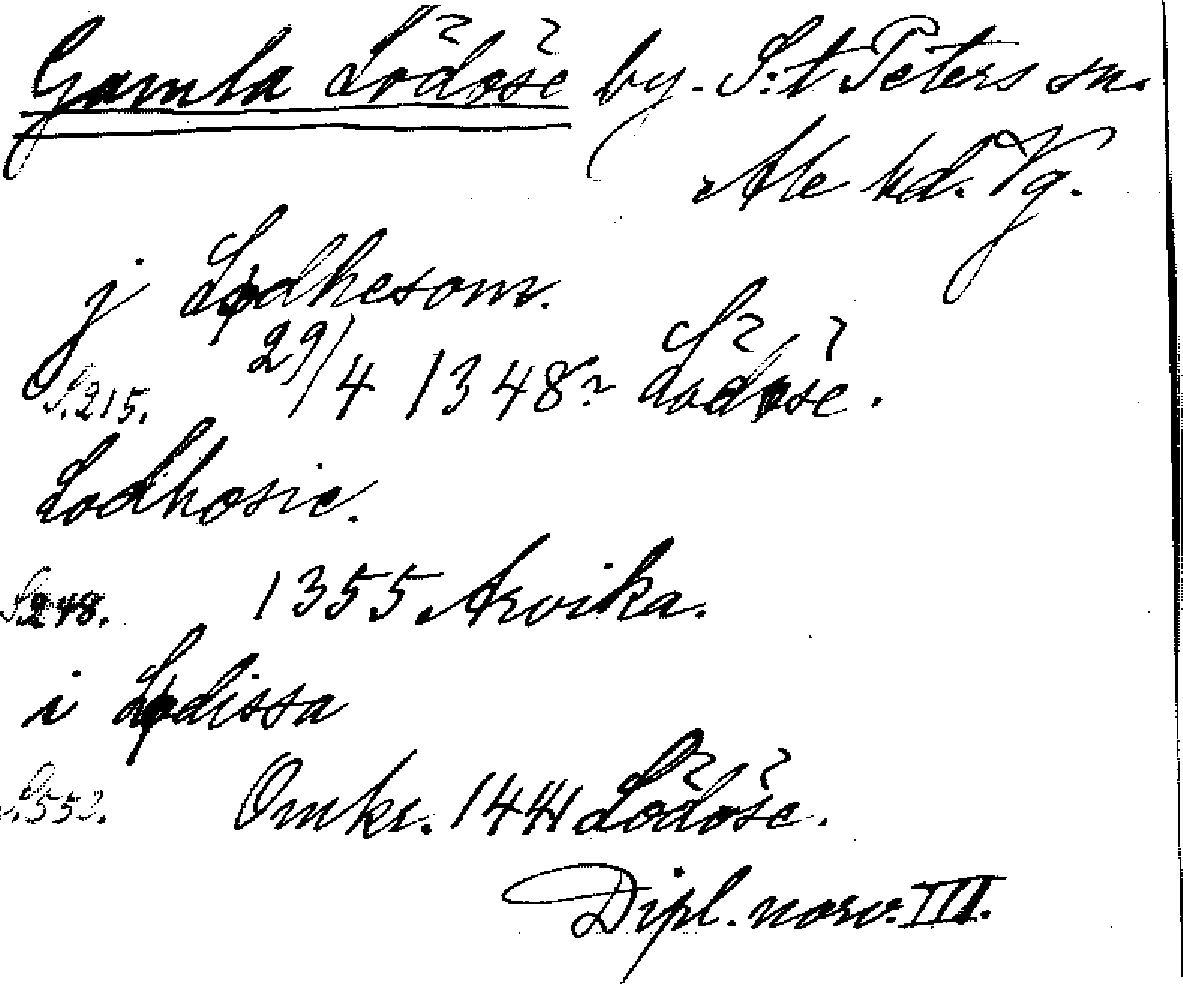 Gamla Lödöse by. S:t Peters sn.
Ale hd. Vg.
j Lødhesom.
S. 215. 29/4 1348. Lödöse.
Lodhosie.
S. 248. 1355 Arvika.
i Lødissa
S. 552. Omkr. 1441 Lödöse.
Dipl. norv. III.